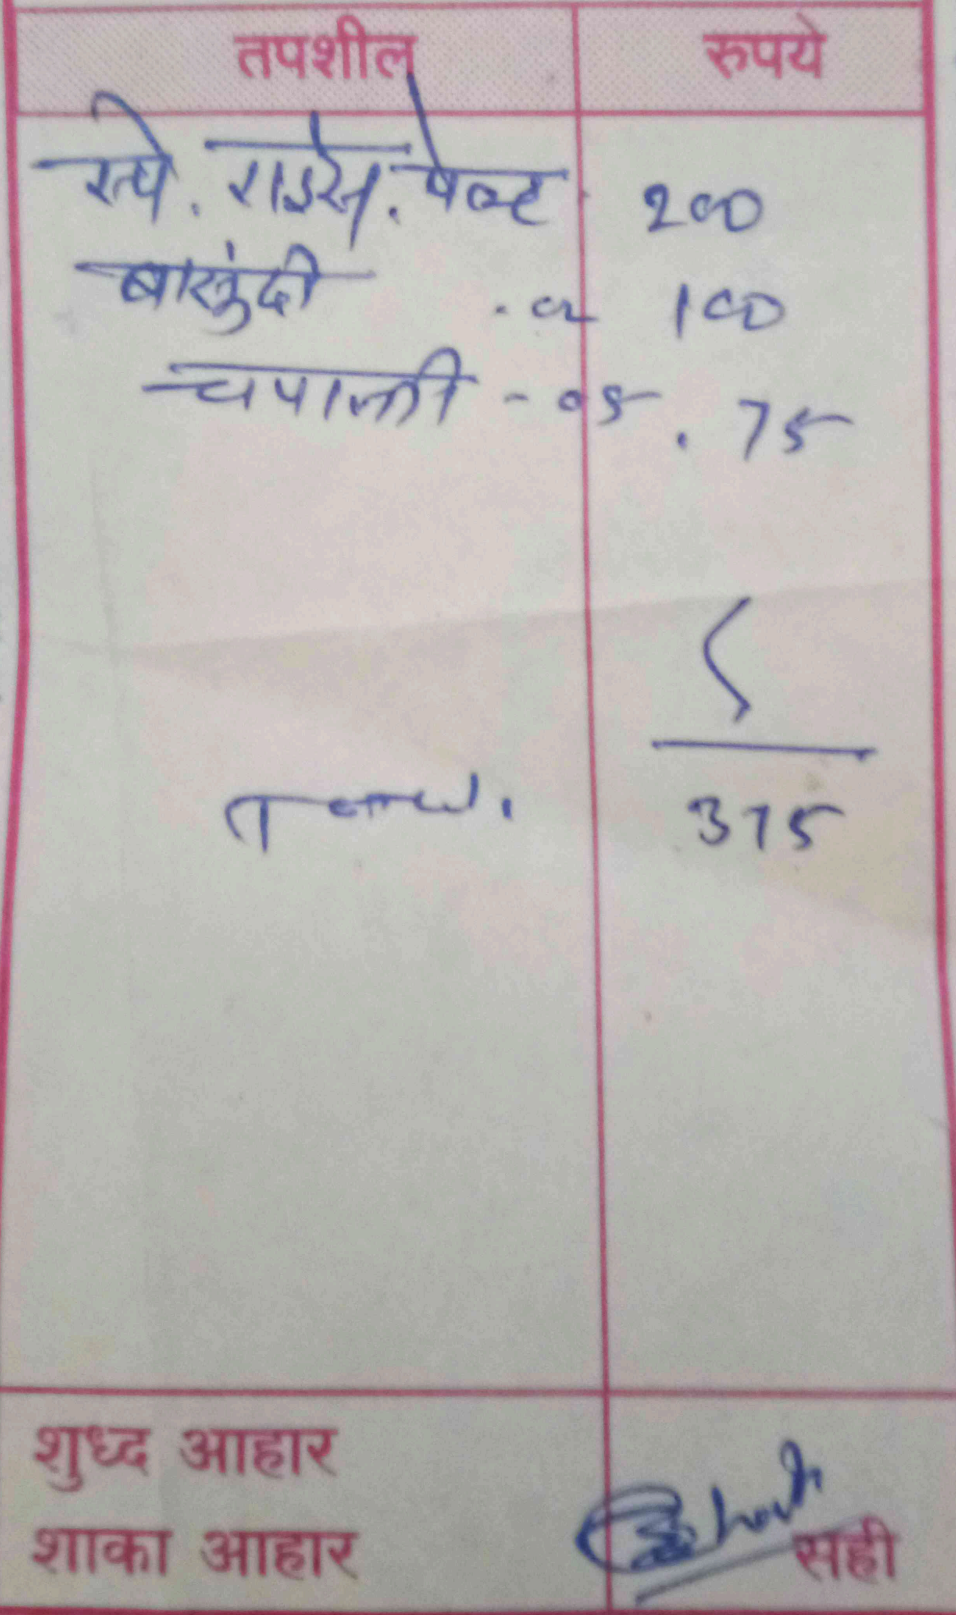 तपशील रुपये
स्पे. राईस. प्लेट 200
बासुंदी . 02 100
चपाती - 05 . 75
Total. 375
शुध्द आहार
शाका आहार सही